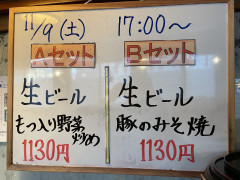 11/9(土) 17:00～
Aセット
生ビール
もつ入り野菜
炒め
1130円
Bセット
生ビール
豚のみそ焼
1130円